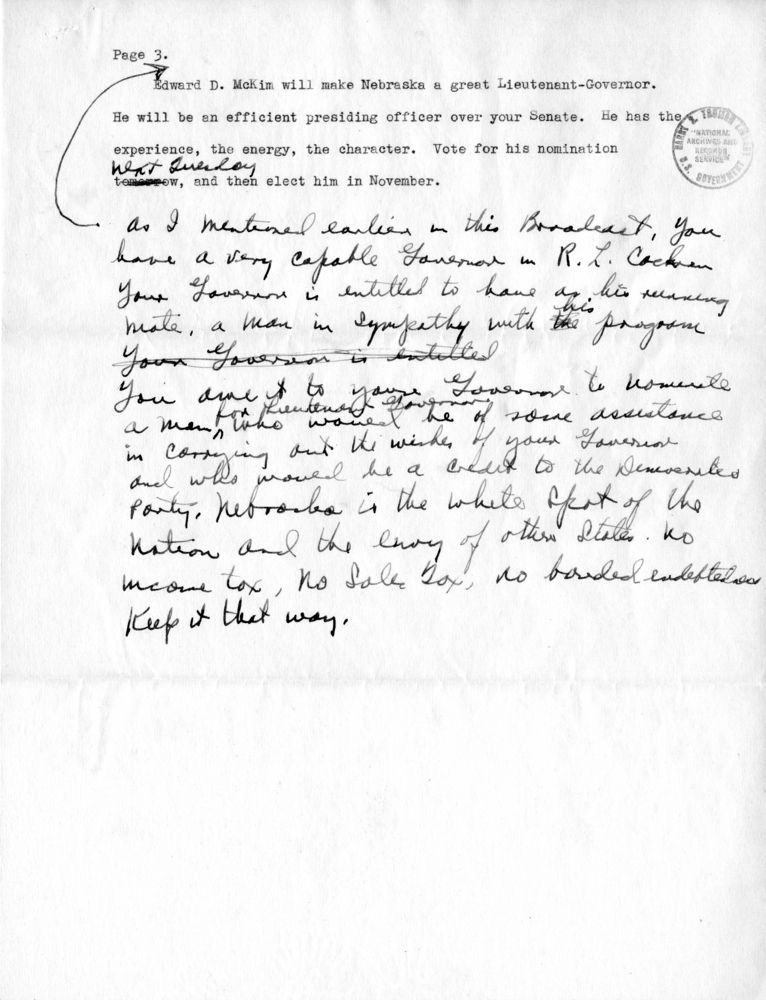 Page 3.
Edward D. McKim will make Nebraska a great Lieutenant-Governor.
He will be an efficient presiding officer over your Senate. He has the
experience, the energy, the character. Vote for his nomination
next Tuesday
tomorrow, and then elect him in November.
HARRY S. TRUMAN LIBRARY
"NATIONAL
ARCHIVES AND
RECORDS
SERVICE"
U.S. GOVERNMENT
As I mentioned earlier in this Broadcast, you
have a very capable Governor in R. L. Cochran
Your Governor is entitled to have as his running
mate, a man in sympathy with the this program
Your Governor is entitled
You owe it to your Governor to nominate
for Lieutenant Governor
a man who would be of some assistance
in carrying out the wishes of your Governor
and who would be a credit to the Democratic
Party. Nebraska is the white spot of the
Nation and the envy of other States. No
income tax, No Sales Tax, no bonded indebtedness
Keep it that way.